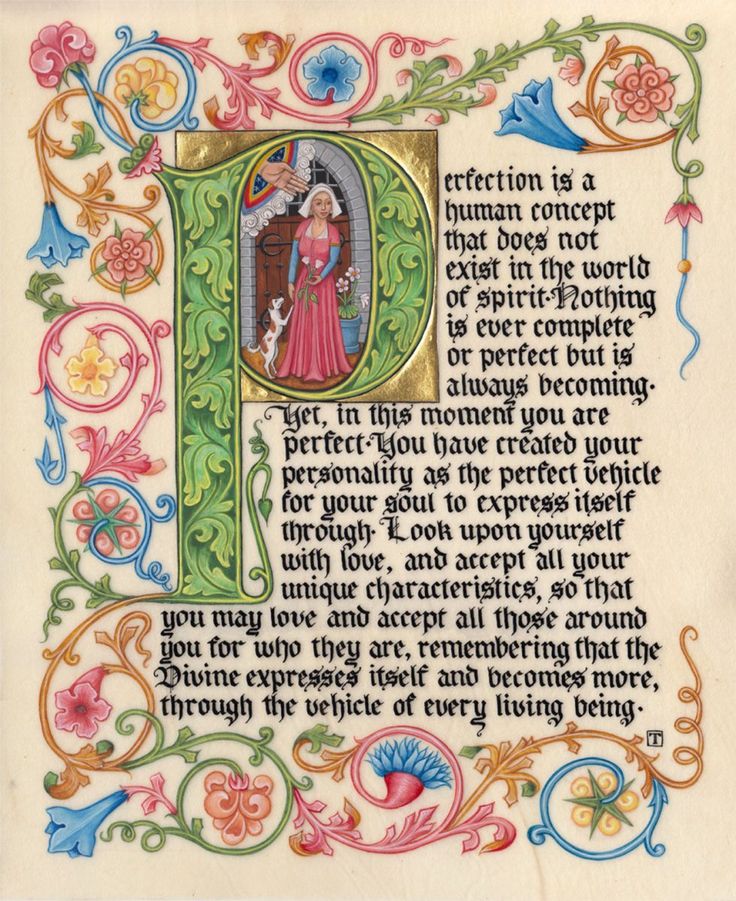 Perfection is a
human concept
that does not
exist in the world
of spirit·Nothing
is ever complete
or perfect but is
always becoming·
Yet, in this moment you are
perfect·You have created your
personality as the perfect vehicle
for your soul to express itself
through· Look upon yourself
with love, and accept all your
unique characteristics, so that
you may love and accept all those around
you for who they are, remembering that the
Divine expresses itself and becomes more,
through the vehicle of every living being·
T